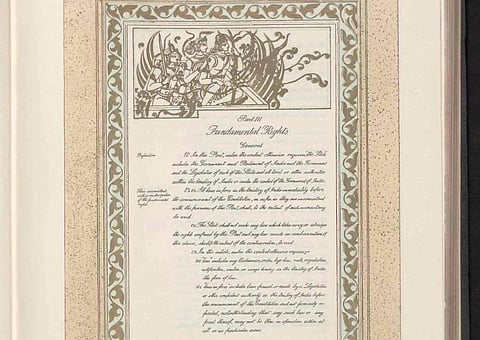 Part III
Fundamental Rights
General
Definition. 12. In this Part, unless the context otherwise requires, the State
includes the Government and Parliament of India and the Government
and the Legislature of each of the States and all local or other authorities
within the territory of India or under the control of the Government of India.
Laws inconsistent with or in derogation of the fundamental rights. 13. (1) All laws in force in the territory of India immediately before
the commencement of this Constitution, in so far as they are inconsistent
with the provisions of this Part, shall, to the extent of such inconsistency,
be void.
(2) The State shall not make any law which takes away or abridges
the rights conferred by this Part and any law made in contravention of
this clause, shall, to the extent of the contravention, be void.
(3) In this article, unless the context otherwise requires,
(a) law includes any Ordinance, order, bye-law, rule, regulation,
notification, custom or usage having in the territory of India
the force of law;
(b) laws in force includes laws passed or made by a Legislature
or other competent authority in the territory of India before
the commencement of this Constitution and not previously re-
pealed, notwithstanding that any such law or any
part thereof may not be then in operation either at
all or in particular areas.